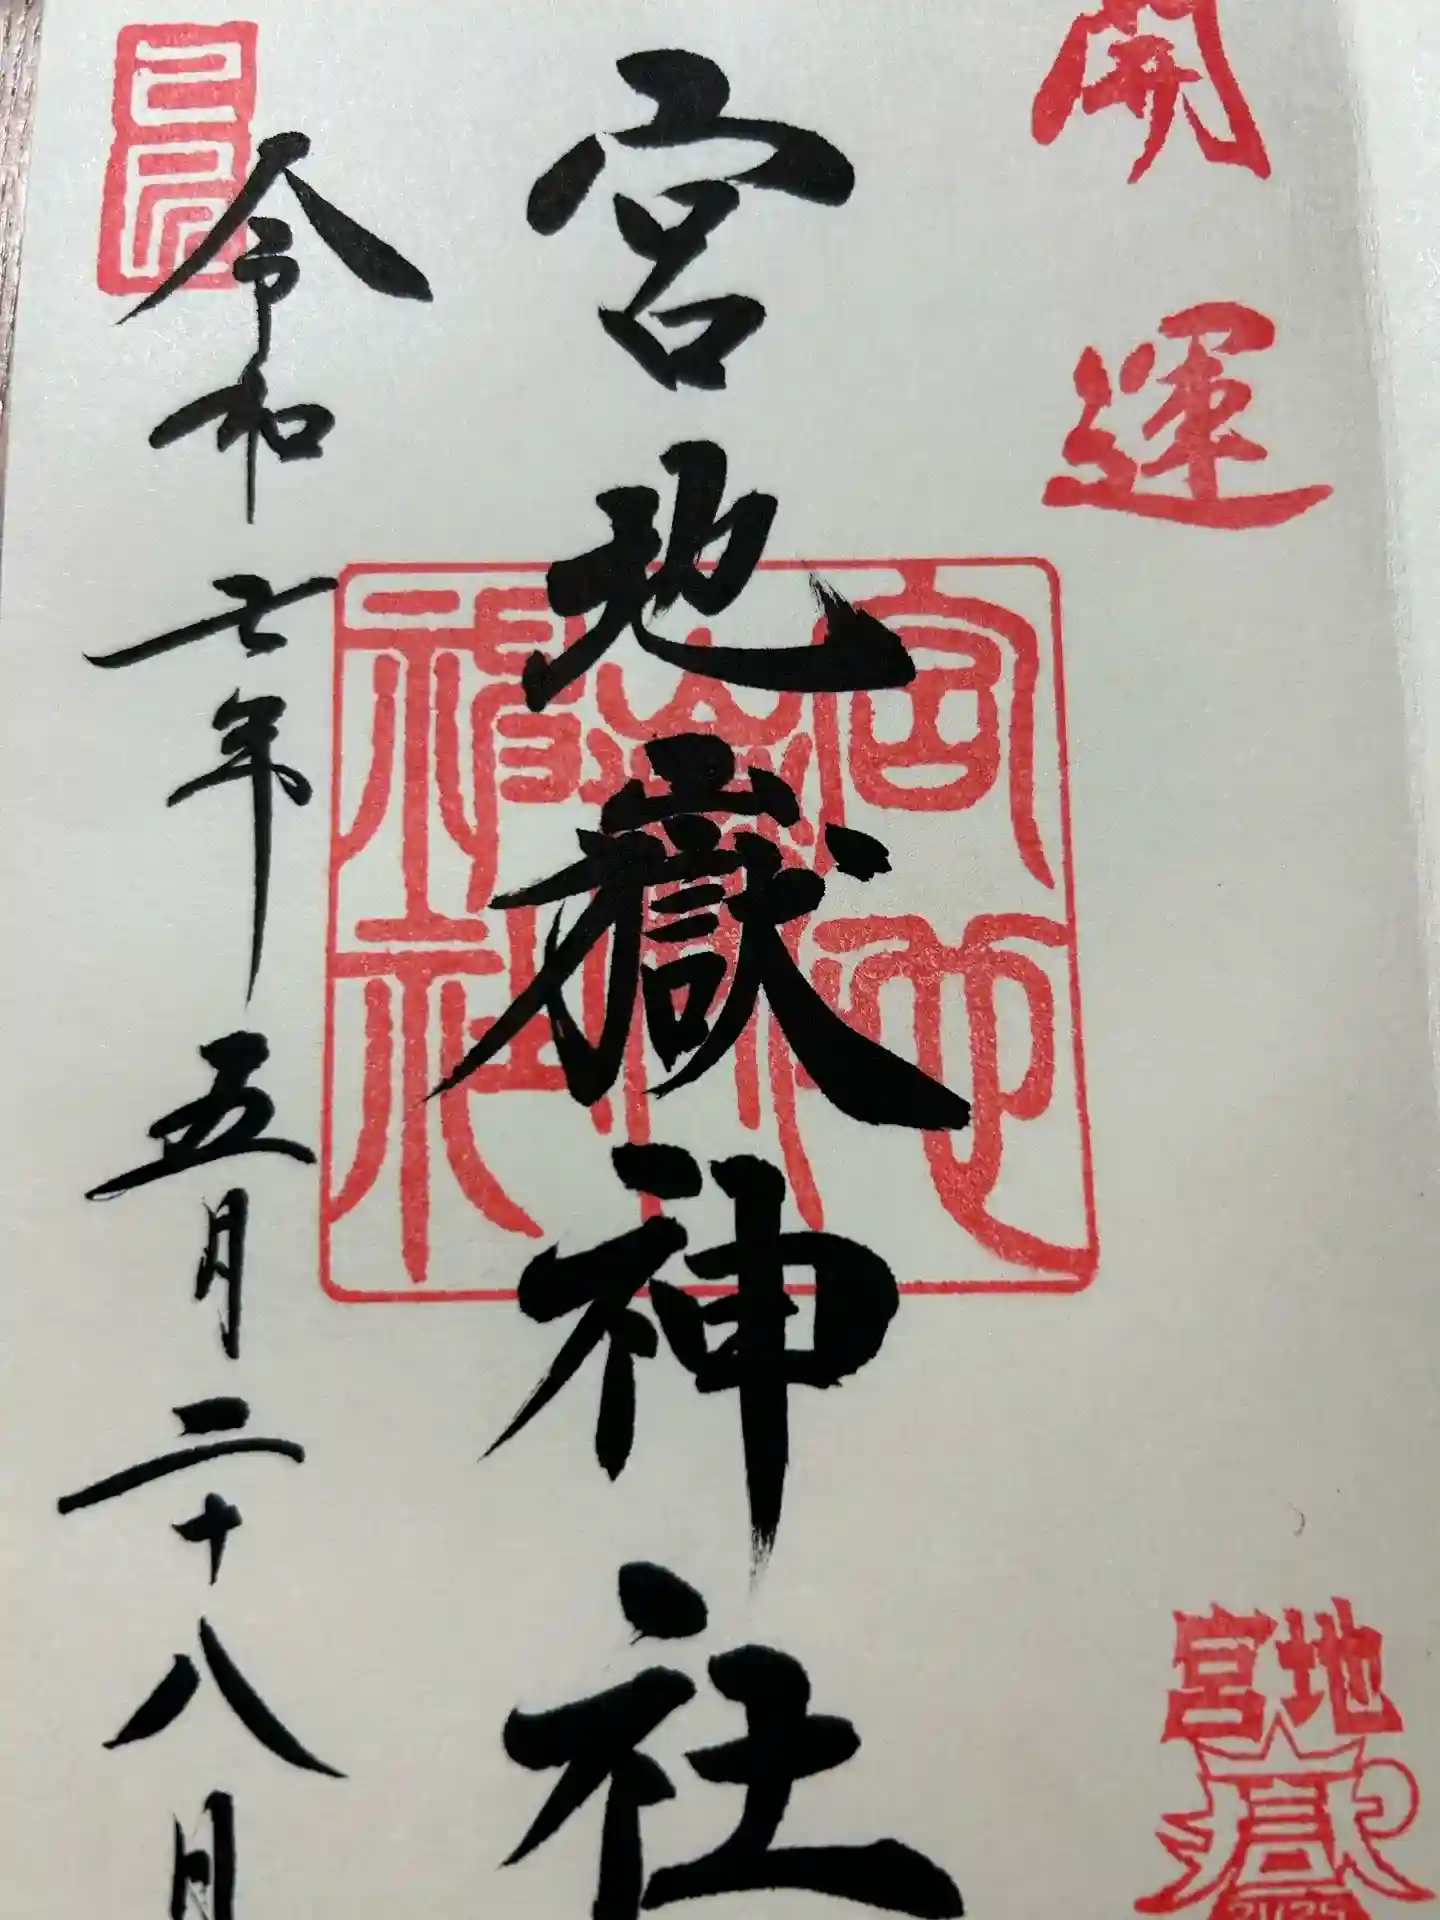 開運
宮地嶽
宮地嶽神社
宮地
嶽神
社
令和七年五月二十八日